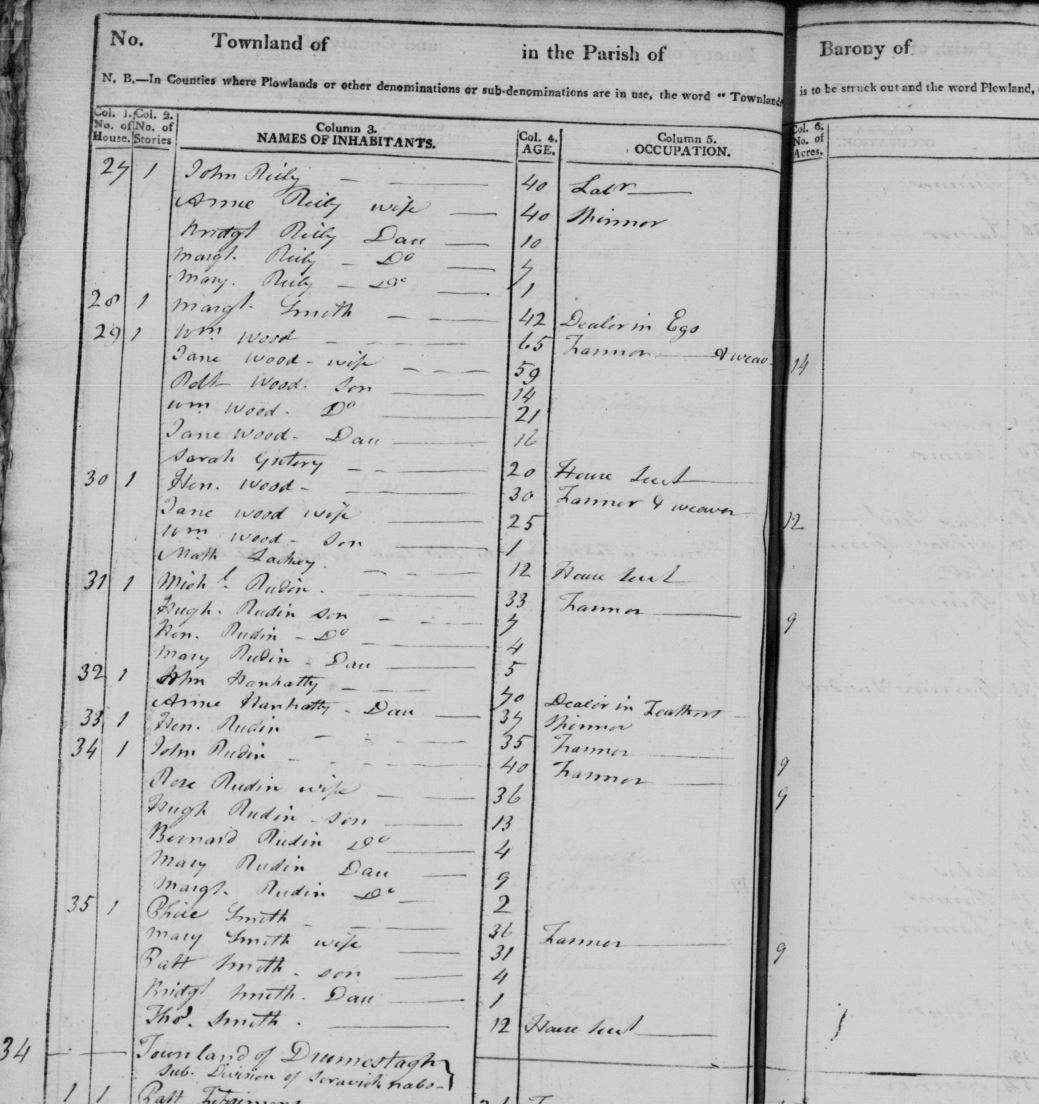 No. Townland of in the Parish of Barony of
N. B.—In Counties where Plowlands or other denominations or sub-denominations are in use, the word "Townland is to be struck out and the word Plowland,
Col. 1. No. of House. Col. 2. No. of Stories Column 3. NAMES OF INHABITANTS. Col. 4. AGE. Column 5. OCCUPATION. Col. 6. No. of Acres.
27 1 John Reily 40 Labr
Anne Reily wife 40 Spinner
Bridgt Reily Dau 10
Margt. Reily Do 7
Mary. Reily Do 1
28 1 Margt. Smith 42 Dealer in Egs
29 1 Wm Wood 65 Farmer & weav 14
Jane Wood wife 59
Robt Wood. Son 14
Wm Wood. Do 21
Jane Wood Dau 16
Sarah 20 House Servt
30 1 Hen. Wood 30 Farmer & weaver 12
Jane Wood wife 25
Wm Wood son 1
Math 12 House Servt
31 1 Michl. Rudin. 33 Farmer 9
Hugh. Rudin son 7
Hen. Rudin Do 4
Mary Rudin Dau 5
32 1 John Hanhatty 70 Dealer in Feathers
Anne Hanhatty Dau 37 Spinner
33 1 Hen. Rudin 35 Farmer 9
34 1 John Rudin 40 Farmer 9
Rose Rudin wife 36
Hugh Rudin son 13
Bernard Rudin Do 4
Mary Rudin Dau 9
Margt. Rudin Do 2
35 1 Smith 36 Farmer 9
Mary Smith wife 31
Patt Smith son 4
Bridgt Smith. Dau 1
Thos. Smith. 12 House Servt
34 Townland of Drumestagh
Sub. Division of
1 1 Patt